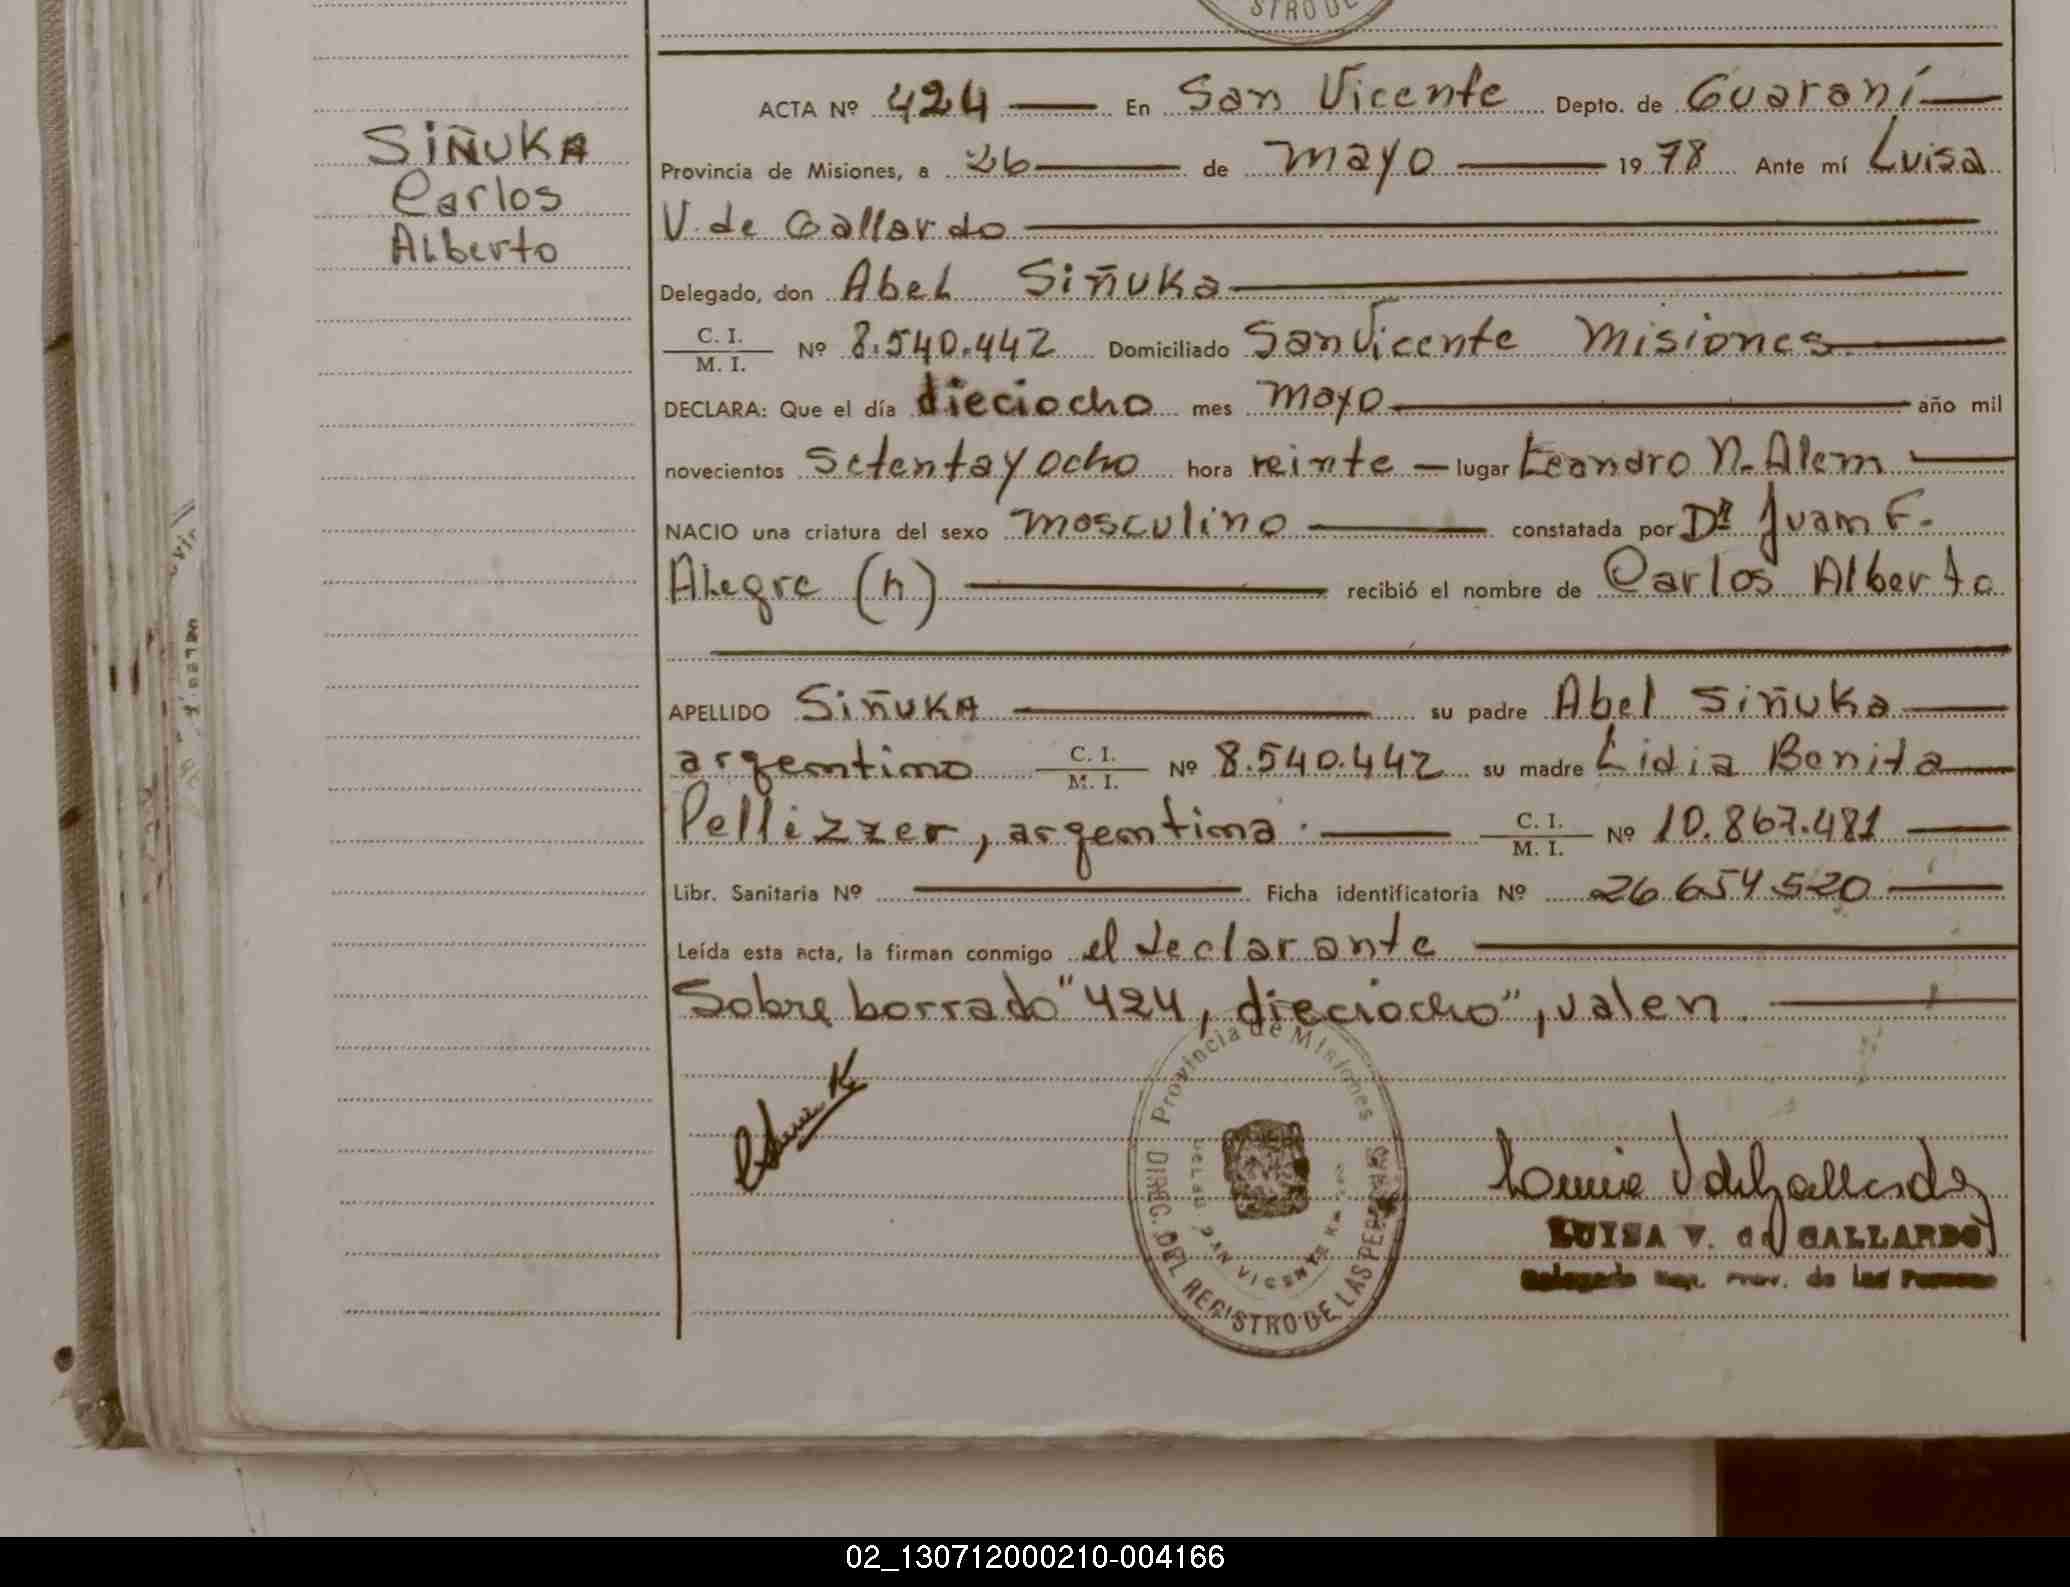 STRO DE
ACTA Nº 424 En San Vicente Depto. de Guaraní
SiÑUKA
Provincia de Misiones, a 26 de mayo 1978 Ante mí Luisa
Carlos
V. de Gallardo
Alberto
Delegado, don Abel Siñuka
C. I.
M. I.
Nº 8.540.442 Domiciliado San Vicente Misiones
DECLARA: Que el día dieciocho mes mayo año mil
novecientos setenta y ocho hora veinte lugar Leandro N. Alem
NACIO una criatura del sexo masculino constatada por Dr Juan F.
Alegre (h) recibió el nombre de Carlos Alberto
APELLIDO SiñuKA su padre Abel Siñuka
argentino C. I. M. I. Nº 8.540.442 su madre Lidia Benita
Pellizzer, argentina. C. I. M. I. Nº 10.867.481
Libr. Sanitaria Nº Ficha identificatoria Nº 26.654.520
Leída esta acta, la firman conmigo el declarante
Sobre borrado "424, dieciocho", valen
Provincia de Misiones
DIREC. DEL REGISTRO DE LAS PERSONAS
SAN VICENTE
LUISA V. de GALLARDO
02_130712000210-004166